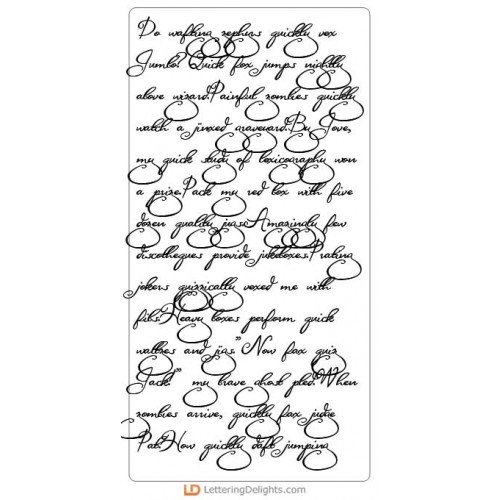 Do wafting zephyrs quickly vex
Jumbo? Quick fox jumps nightly
above wizard.Painful zombies quickly
watch a jinxed graveyard.By Jove,
my quick study of lexicography won
a prize.Pack my red box with five
dozen quality jugs.Amazingly few
discotheques provide jukeboxes.Prating
jokers quizzically vexed me with
fibs.Heavy boxes perform quick
waltzes and jigs."Now fax quiz
Jack!" my brave ghost pled.When
zombies arrive, quickly fax judge
Pat.How quickly daft jumping
LD LetteringDelights.com